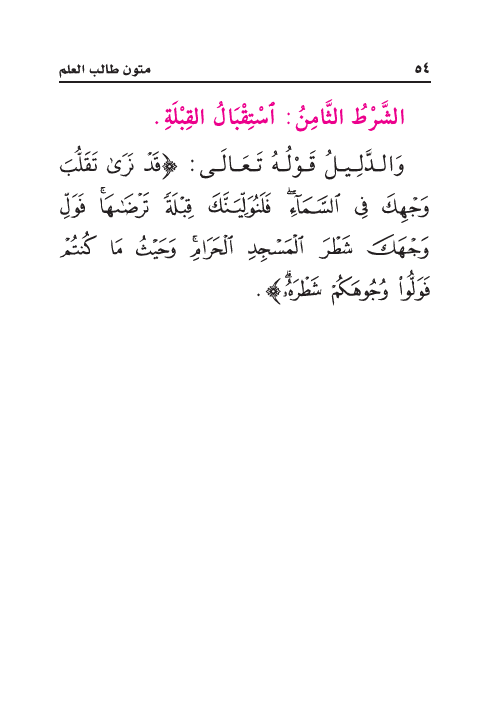 ٥٤ متون طالب العلم
الشَّرْطُ الثَّامِنُ: ٱسْتِقْبَالُ القِبْلَةِ.
وَالدَّلِيلُ قَوْلُهُ تَعَالَى: ﴿قَدْ نَرَىٰ تَقَلُّبَ
وَجْهِكَ فِي ٱلسَّمَآءِۖ فَلَنُوَلِّيَنَّكَ قِبْلَةً تَرْضَىٰهَاۚ فَوَلِّ
وَجْهَكَ شَطْرَ ٱلْمَسْجِدِ ٱلْحَرَامِۚ وَحَيْثُ مَا كُنتُمْ
فَوَلُّوا۟ وُجُوهَكُمْ شَطْرَهُۥۗ﴾.